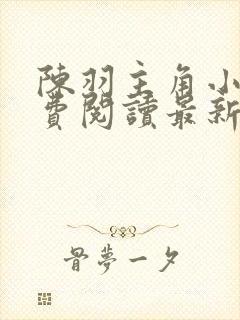 陳羽主角小
費閱讀最新
骨夢一夕